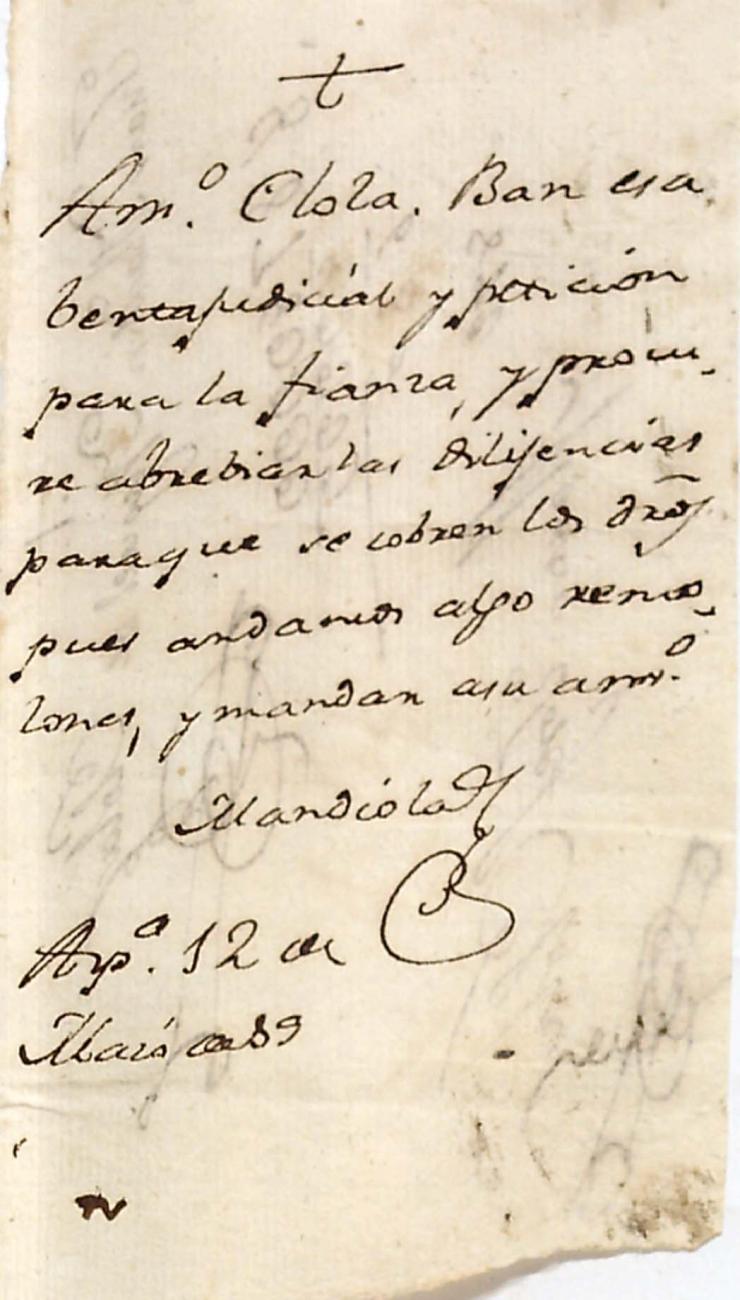 Am.º Clola. Ban esa
benta judicial y petición
para la fianza, y procu-
re abrebiar las dilijencias
paraque se cobren los dr̃os
pues andamos algo remo-
lones, y mandar asu am.º
Mandiola
Ap.ª 12 de
Maio de 89